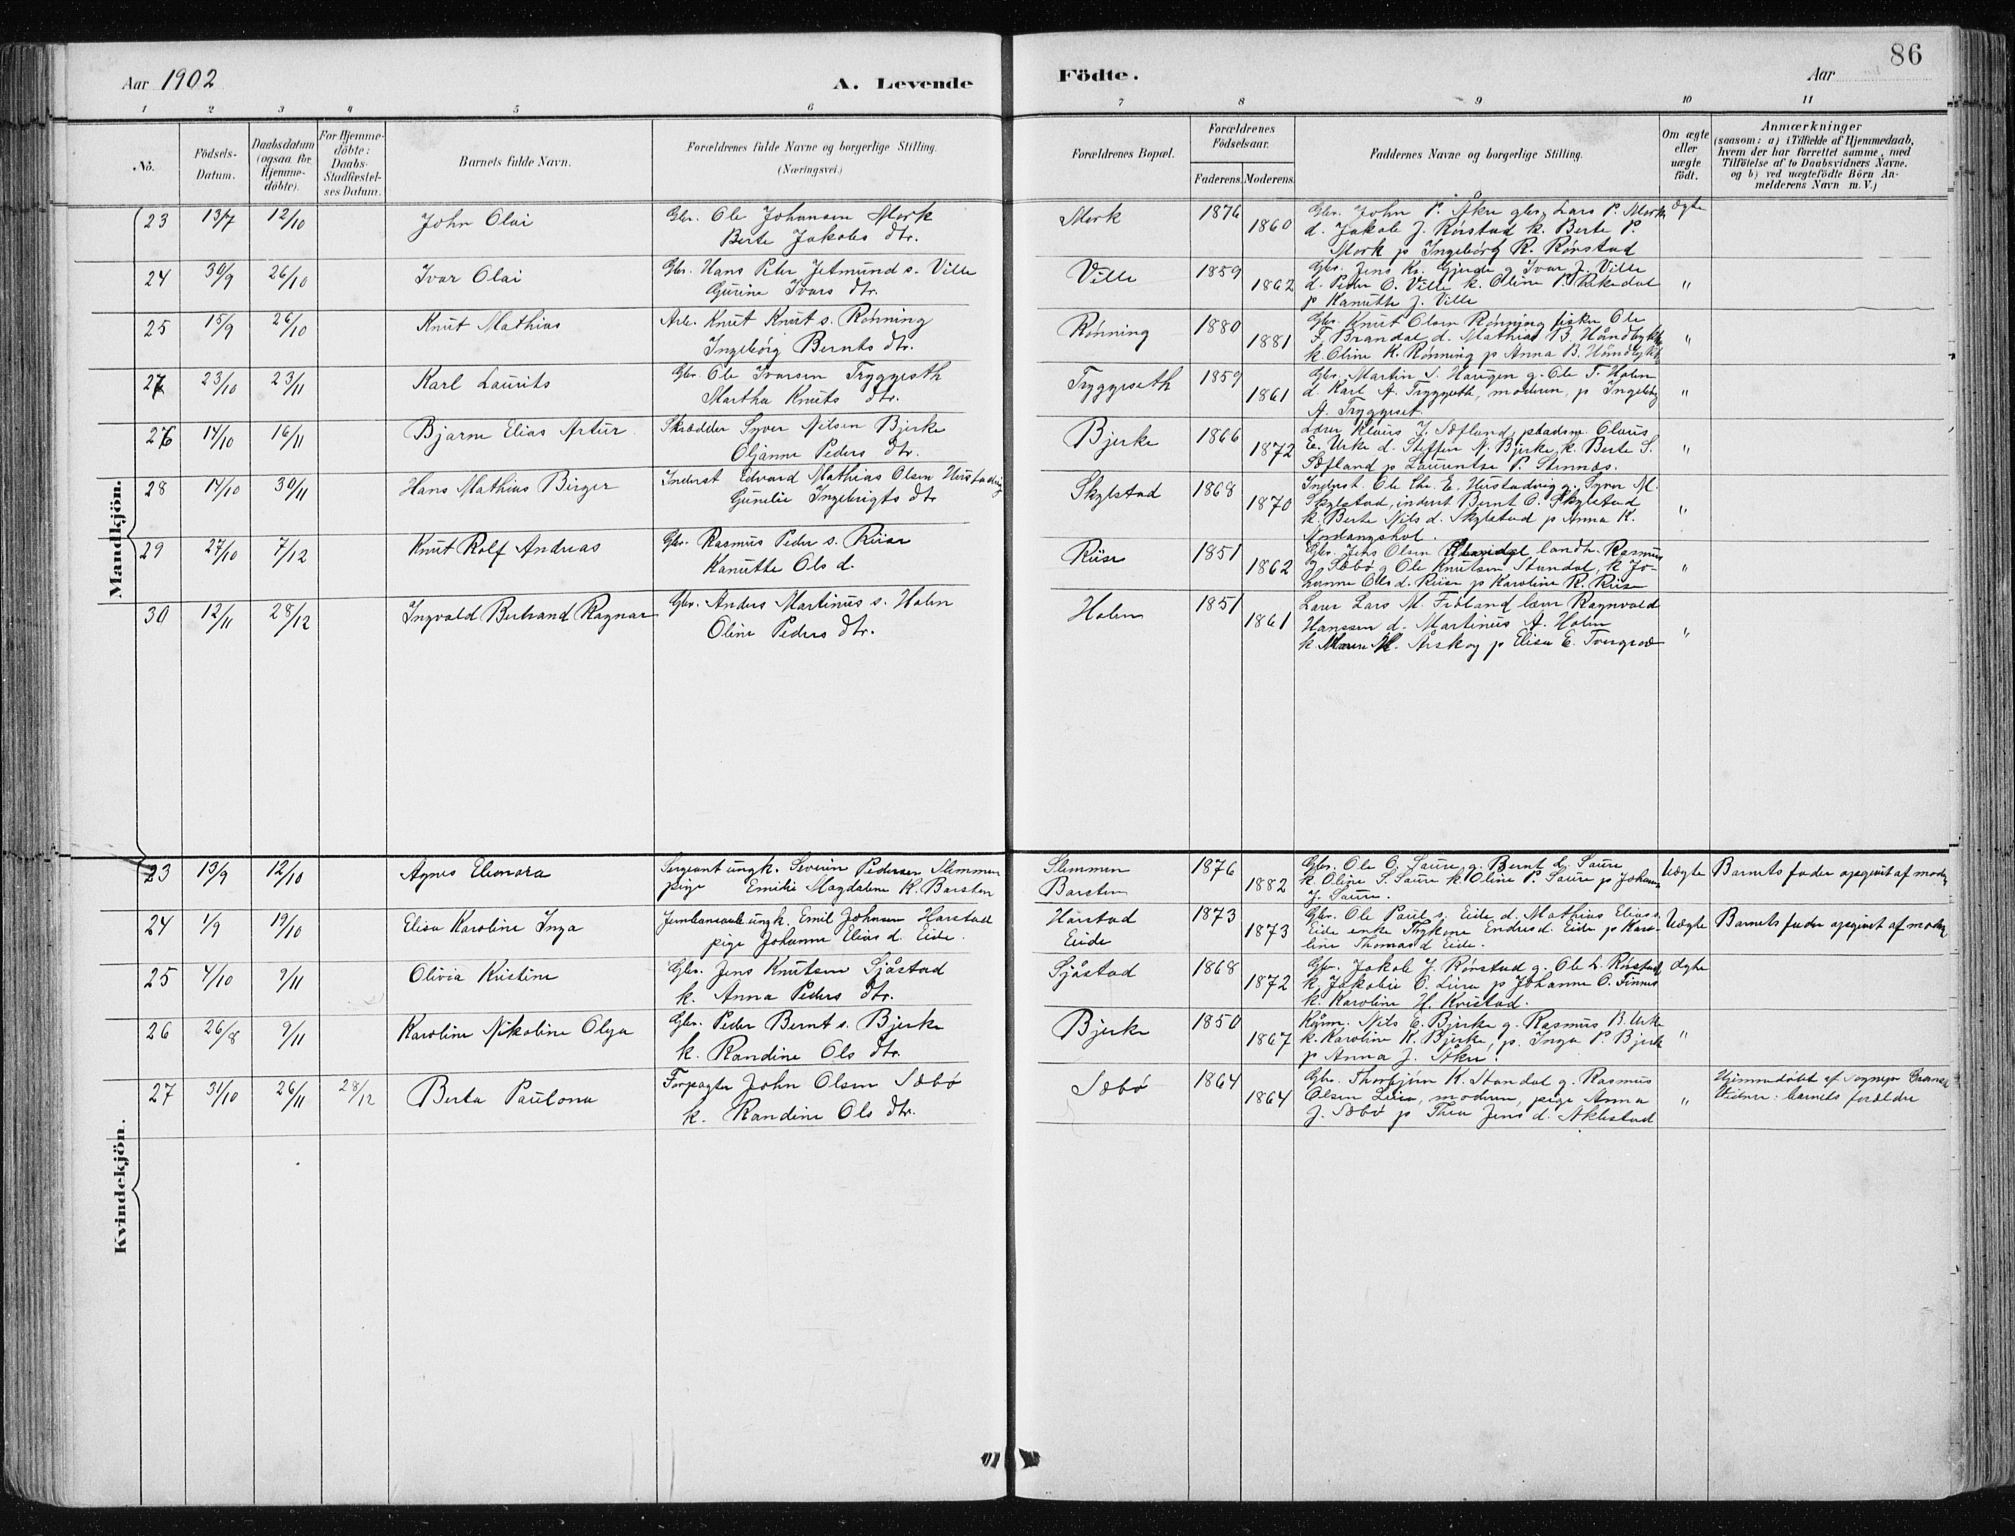 86
Aar 1902
A. Levende
Födte.
Aar
1 2 3 4 5 6 7 8 9 10 11
No.
Födsels-Datum.
Daabsdatum (ogsaa for Hjemme-döbte).
For Hjemme-döbte: Daabs-Stadfæstel-ses Datum.
Barnets fulde Navn.
Forældrenes fulde Navne og borgerlige Stilling. (Næringsvei.)
Forældrenes Bopæl.
Forældrenes Födselsaar.
Faderens. Moderens.
Faddernes Navne og borgerlige Stilling.
Om ægte eller uægte födt.
Anmærkninger
(saasom: a) i Tilfælde af Hjemmedaab, hvem der har forrettet samme, med Tilföielse af to Daabsvidners Navne. og b) ved uægtefödte Börn An-melderens Navn m. V.)
Mandkjön.
23 13/7 12/10 John Olai Gbr. Ole Johansen Mork Mork 1876 Gbr. John P. Åkre gbr. Lars P. Mork ægte
Berte Jakobs dtr. 1860 d. Jakob J. Rørstad k. Berte P.
Mork p Ingebörg R. Rørstad
24 30/9 26/10 Ivar Olai Gbr. Hans Peter Jetmund s. Ville Ville 1859 Gbr. Jens Kr. Gjerde g Ivar J. Ville
Gurine Ivars dtr. 1862 d. Peder O. Ville k. Oline P. "
p Kanutte J. Ville
25 15/9 26/10 Knut Mathias Arb. Knut Knut s. Rønning Rønning 1880 Gbr. Knut Olsen Rønning fisker Ole
Ingebörg Bernts dtr. 1881 F. Brandal d. Mathias B. "
k. Oline K. Rønning p Anna B.
27 23/10 23/11 Karl Laurits Gbr. Ole Ivarsen Tryggeseth Tryggeseth 1859 Gbr. Martin S. Haugen g. Ole T. Holen
Martha Knuts dtr. 1861 d. Karl A. Tryggeseth, moderen, p Ingeborg "
A. Tryggeset
26 14/10 16/11 Bjarne Elias Artur Skrædder Syver Nilsen Bjerke Bjerke 1866 Lærer Klaus J. Sæfland, pladsm. Claus
Oljanne Peders dtr. 1872 E. Urke d. Steffen N. Bjerke k. Berte S. "
Sæfland p Laurentse P. Stennes.
28 14/10 30/11 Hans Mathias Birger Inderst Edvard Mathias Olsen Skylstad 1868 Inderst. Ole Chr. E. g. Syver M.
Gunelie Ingebrigts dtr 1870 Skylstad, inderst Bernt O. Skylstad "
k. Berte Nils d. Skylstad p Anna K.
29 27/10 7/12 Knut Rolf Andreas Gbr. Rasmus Peder s. Riise Riise 1851 Gbr. Jens Olsen landh. Rasmus
Kanutte Ols d. 1862 J. Sæbö g Ole Knutsen Standal, k Jo- "
hanne Ols d. Riise p Karoline R. Riise
30 12/11 28/12 Ingvald Bertrand Ragnar Gbr. Anders Martinus s. Holen Holen 1851 Lærer Lars M. Frøland lærer Ragnvald
Oline Peders dtr. 1861 Hanssen d. Martinus A. Holen "
k. Maren M. Årskog p Elisa E.
Kvindekjön.
23 13/9 12/10 Agnes Elenora Sergeant ungk. Severin Pedersen Slemmen Slemmen 1876 Gbr. Ole O. Saure g. Bernt d. Saure Uægte Barnets fader opgivet af moder
pige Emilie Magdalene K. Barsten Barsten 1882 k. Oline S. Saure k Oline P. Saure p Johanne
J. Saure.
24 1/9 19/10 Elisa Karoline Inga ungk. Emil Johnsen Harstad Harstad 1873 Gbr. Ole Paul s. Eide d. Mathias Elias s. Uægte Barnets fader opgivet af moder
pige Johanne Elias d. Eide. Eide 1873 Eide enke Endres d. Eide p Karo-
line Thomas d Eide.
25 4/10 9/11 Olivia Kristine Gbr. Jens Knutsen Sjåstad Sjåstad 1868 Gbr. Jakob J. Rørstad g. Ole L. Rørstad ægte
k. Anna Peders dtr. 1872 k. Jakobie O. p Johanne O. Finnes
k. Karoline H. Kvistad.
26 26/8 9/11 Karoline Nikoline Olga Gbr. Peder Bernt s. Bjerke Bjerke 1850 Nils E. Bjerke g. Rasmus B. Urke
k. Randine Ols dtr. 1867 k. Karoline K. Bjerke, p. Inga P. Bjerke "
p Anna J. Åkre.
27 31/10 26/11 28/12 Berta Paulona Forpagter John Olsen Sæbö Sæbö 1864 Gbr. Thorbjörn K. Standal g. Rasmus Hjemmedöbt af
k. Randine Ols dtr. 1864 Olsen moderen, pige Anna " Vidner: barnets forældre
J. Sæbö p Thea Jens d. Aklestad